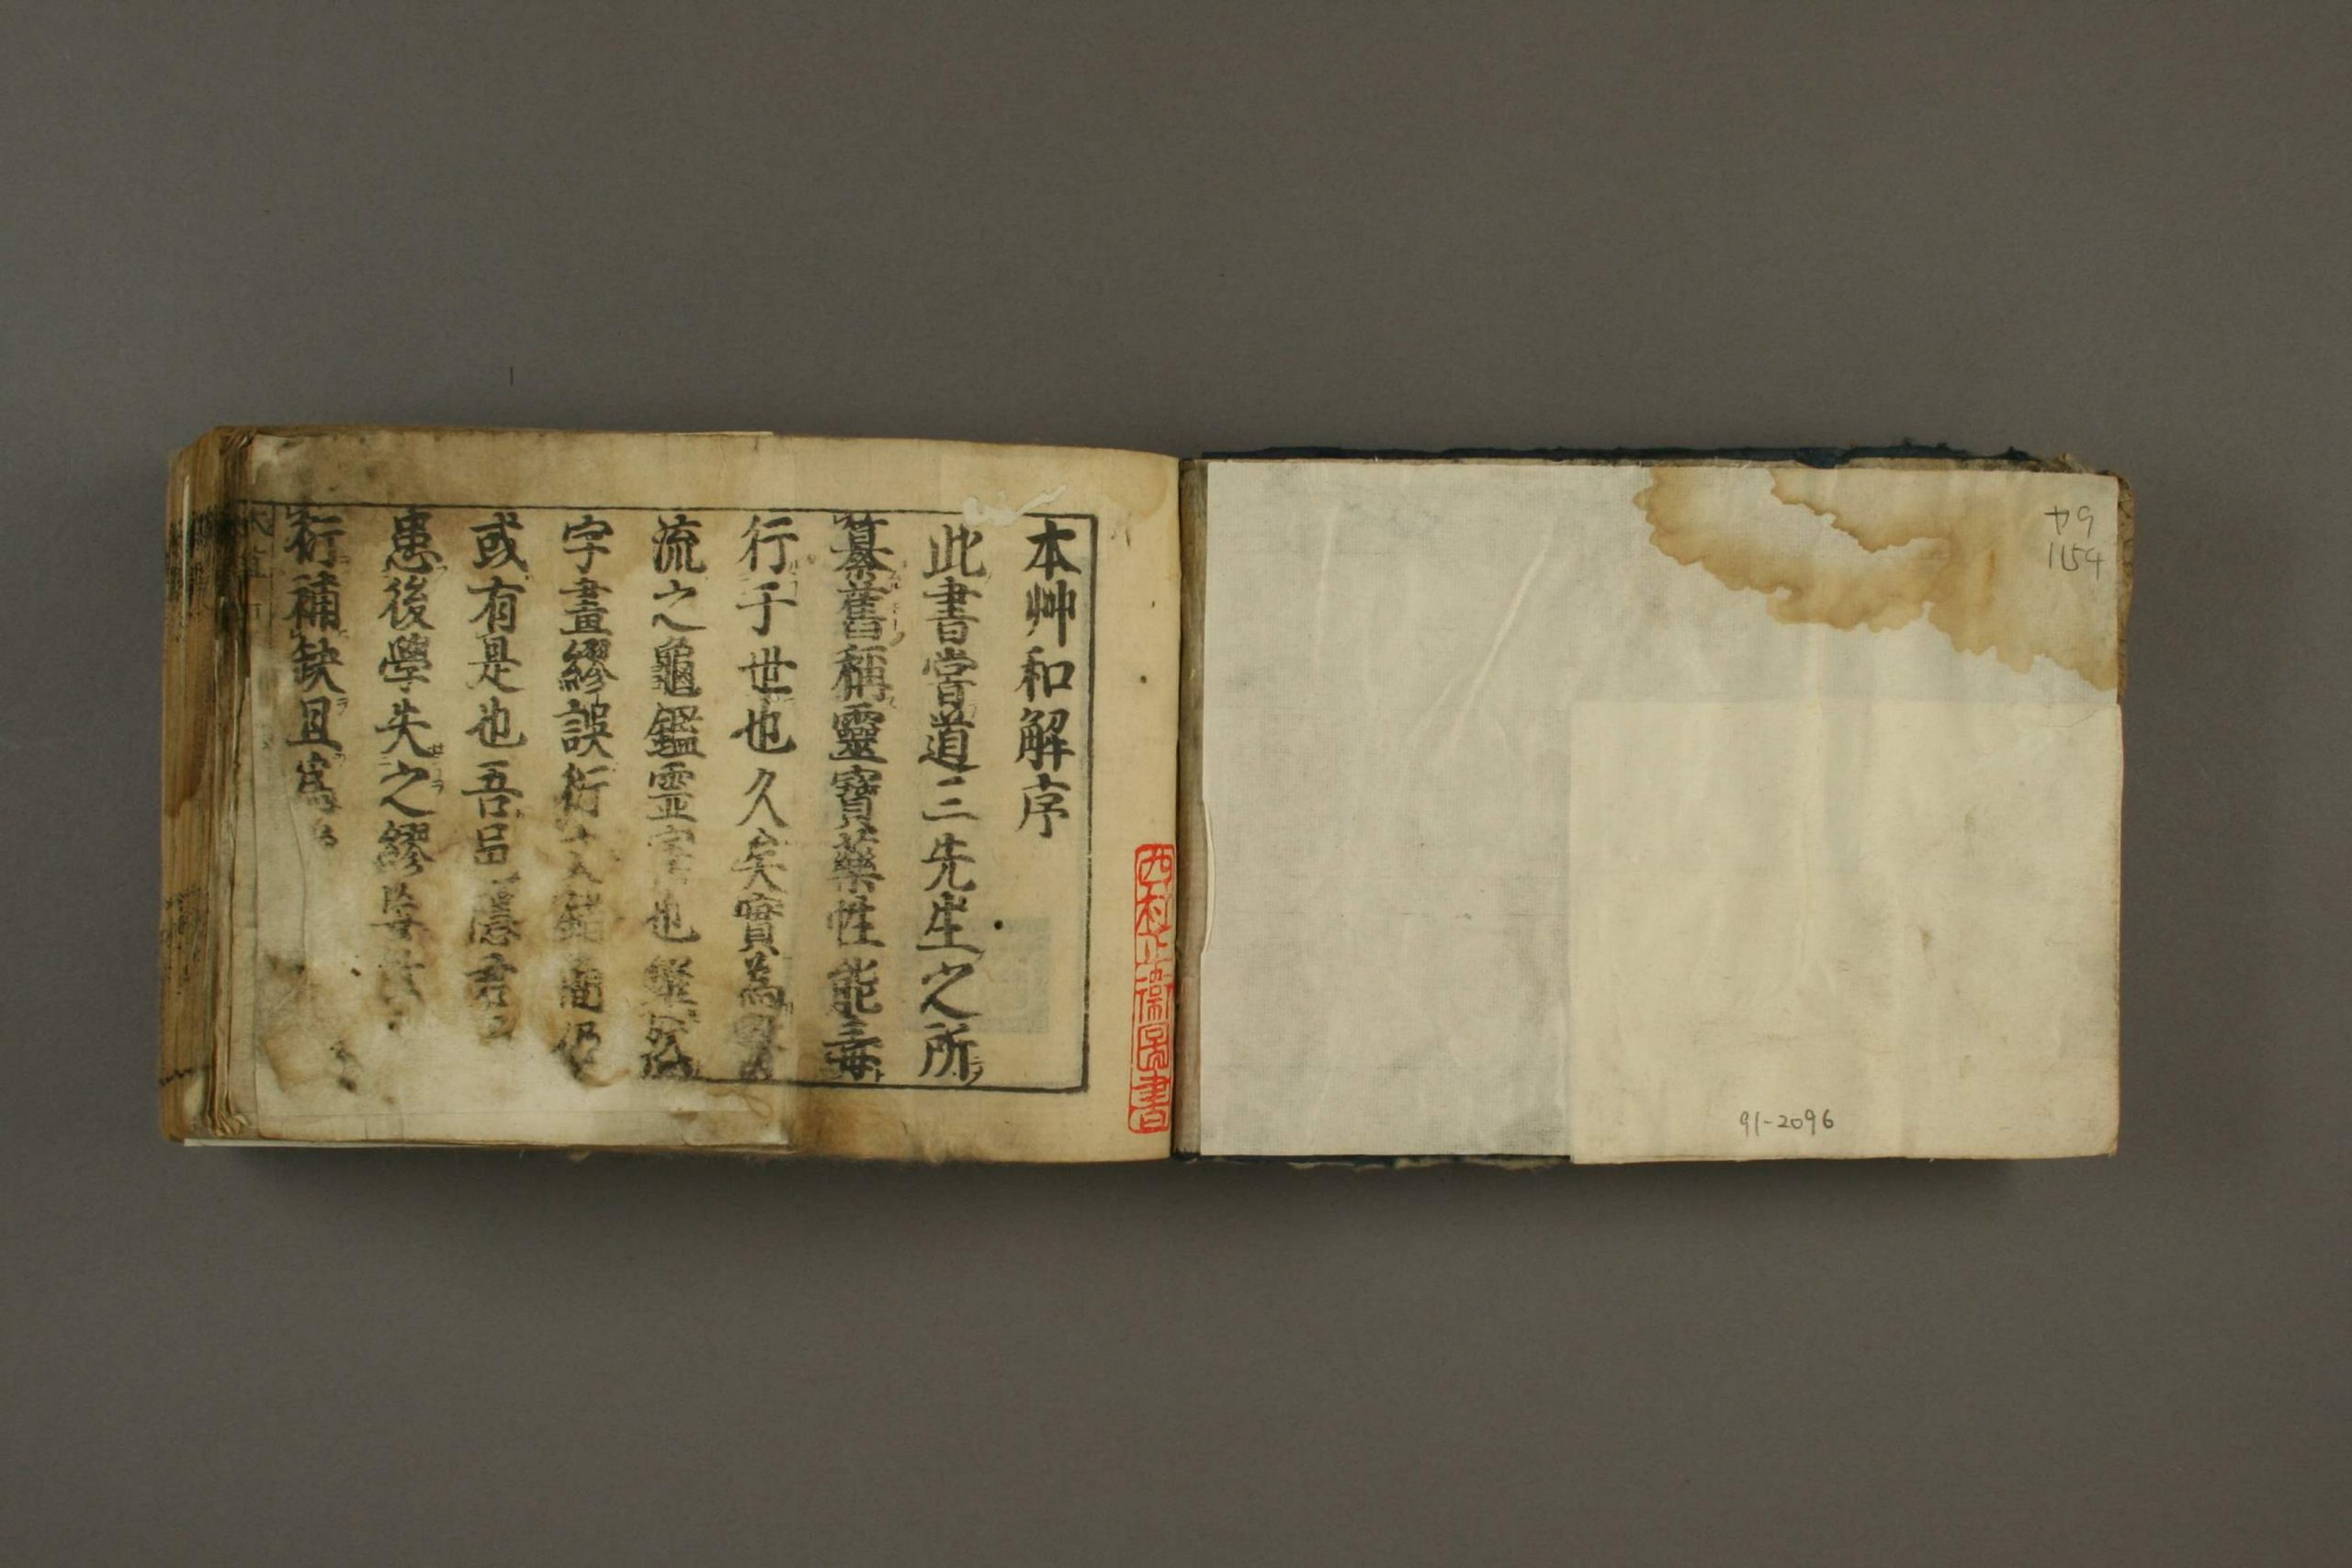 や9
1154
91-2096
本艸和解序
此書當道三先生之所
纂舊稱靈寶藥性能毒
行于世也久矣實為
流之龜鑑霊也
字畫繆誤衍簡仍
或有是也吾隱君
患後學失之繆
衍補缺且為